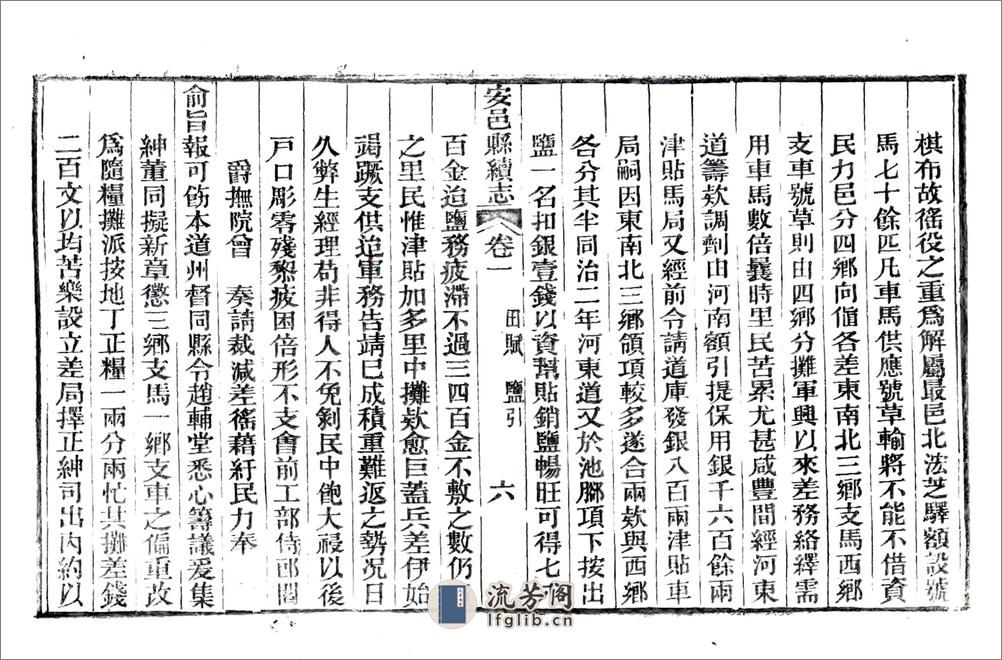 棋布故徭役之重爲解屬最邑北泓芝驛額設號
馬七十餘匹凡車馬供應號草輸將不能不借資
民力邑分四鄉向值各差東南北三鄉支馬西鄉
支車號草則由四鄉分攤軍興以來差務絡繹需
用車馬數倍曩時里民苦累尤甚咸豐間經河東
道籌欵調劑由河南額引提保用銀千六百餘兩
津貼馬局又經前令請道庫發銀八百兩津貼車
局嗣因東南北三鄉領項較多遂合兩欵與西鄉
各分其半同治二年河東道又於池腳項下按出
鹽一名扣銀壹錢以資幫貼銷鹽暢旺可得七八
安邑縣續志 卷一 田賦 鹽引 六
百金迨鹽務疲滯不過三四百金不敷之數仍派
之里民惟津貼加多里中攤欵愈巨蓋兵差伊始
竭蹶支供迨軍務告靖巳成積重難返之勢况日
久弊生經理苟非得人不免剝民中飽大祲以後
戸口彫零殘黎疲困倍形不支會前工部侍郎閻
爵撫院曾 奏請裁減差徭藉紓民力奉
俞旨報可飭本道州督同縣令趙輔堂悉心籌議爰集
紳董同擬新章懲三鄉支馬一鄉支車之偏重改
爲隨糧攤派按地丁正糧一兩分兩忙共攤差錢
二百文以均苦樂設立差局擇正紳司出內約以
流芳阁
lfglib.cn